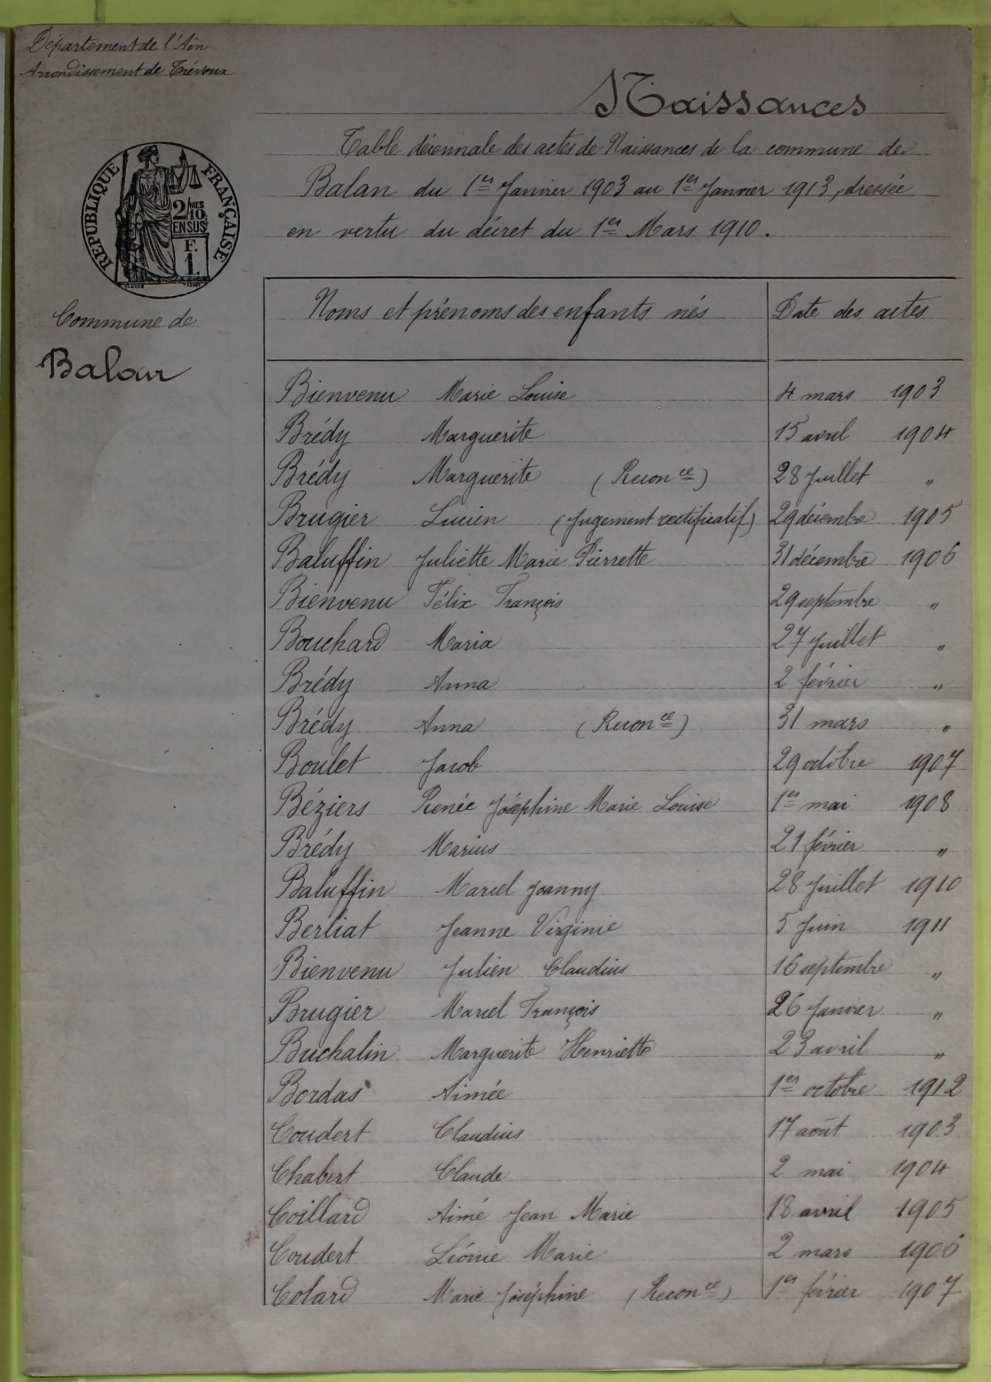 Département de l'Ain
Arrondissement de Trévoux
Naissances
Table décennale des actes de Naissances de la commune de
Balan du 1er Janvier 1903 au 1er Janvier 1913, dressée
en vertu du décret du 1er Mars 1910.
RÉPUBLIQUE FRANÇAISE
2/10
EN SUS
F.
1.
Commune de
Balan
Noms et prénoms des enfants nés Date des actes
Bienvenu Marie Louise 4 mars 1903
Brédy Marguerite 15 avril 1904
Brédy Marguerite (Reconce) 28 Juillet "
Brugier Lucien (Jugement rectificatif) 29 décembre 1905
Baluffin Juliette Marie Pierrette 31 décembre 1906
Bienvenu Félix François 29 septembre "
Bouchard Maria 27 Juillet "
Brédy Anna 2 février "
Brédy Anna (Reconce) 31 mars "
Boulet Jacob 29 octobre 1907
Béziers Renée Joséphine Marie Louise 1er mai 1908
Brédy Marius 21 février "
Baluffin Marcel Joanny 28 Juillet 1910
Berliat Jeanne Virginie 5 Juin 1911
Bienvenu Julien Claudius 16 septembre "
Brugier Marcel François 26 Janvier "
Buchalin Marguerite Henriette 23 avril "
Bordas Aimée 1er octobre 1912
Coudert Claudius 17 août 1903
Chabert Claude 2 mai 1904
Coillard Aimé Jean Marie 18 avril 1905
Coudert Léonie Marie 2 mars 1906
Colard Marie Joséphine (Reconce) 1er février 1907